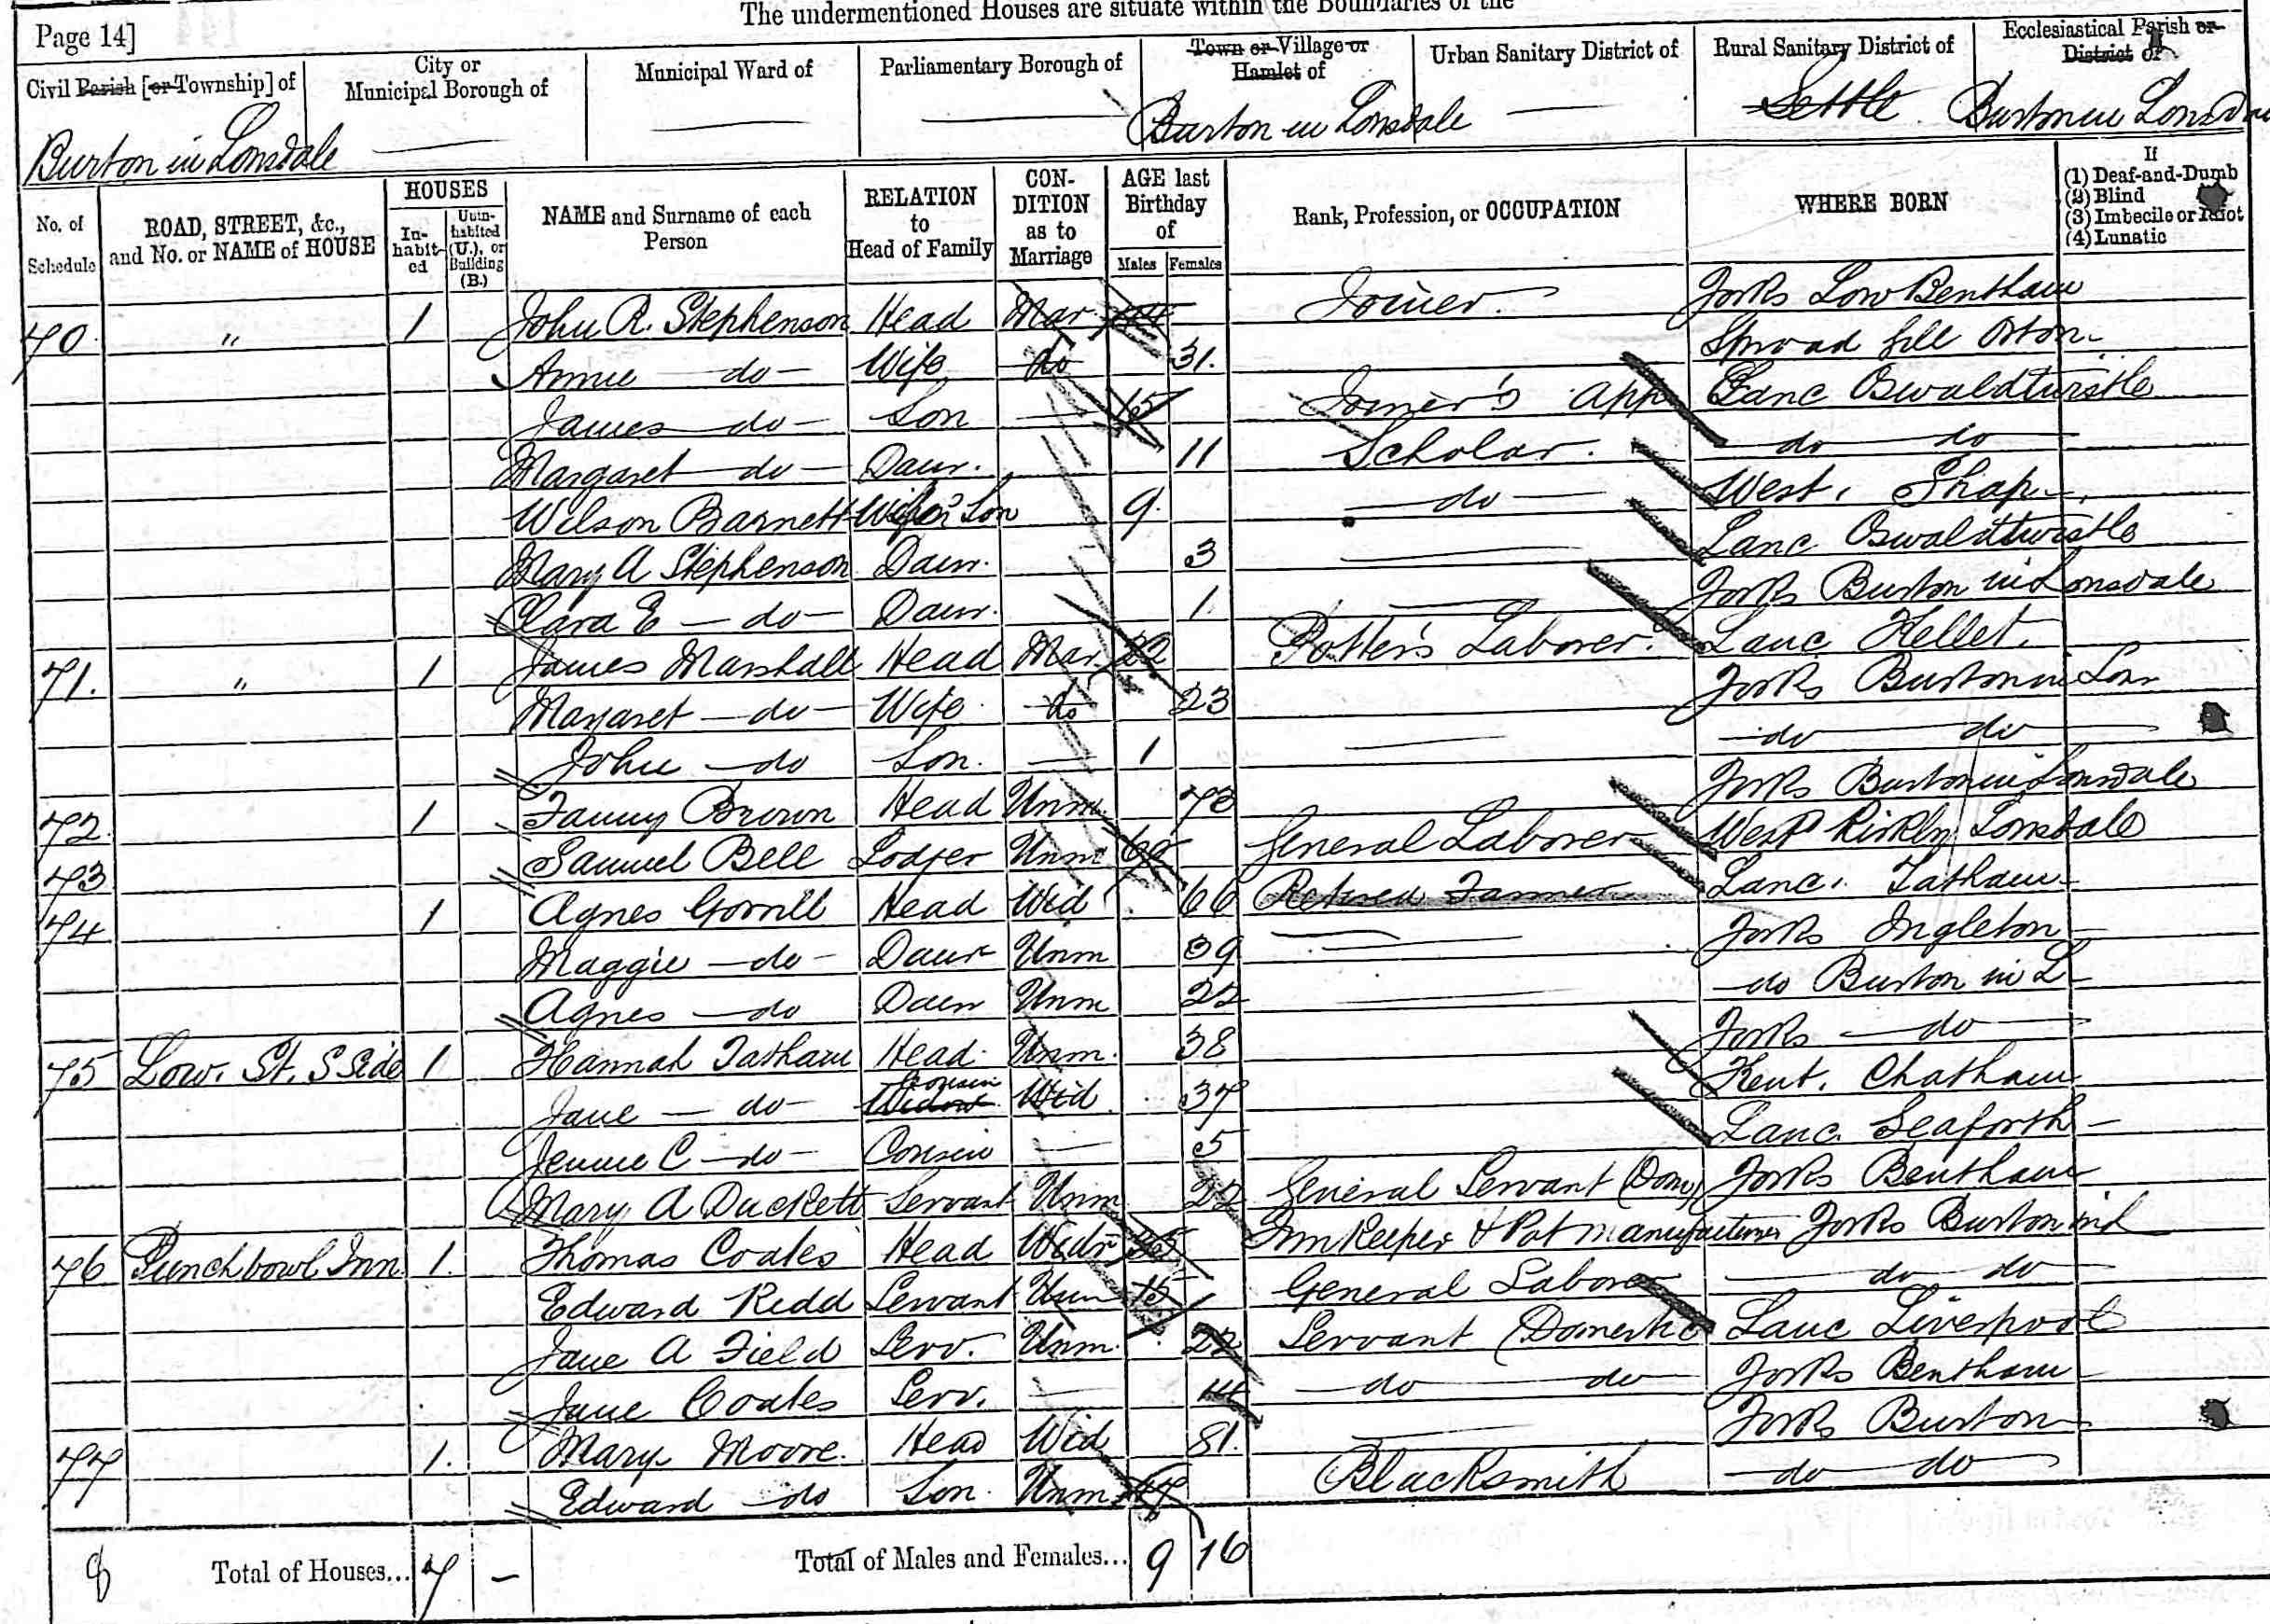 The undermentioned Houses are situate within the Boundaries of the
Page 14]
Civil Parish [or Township] of
City or Municipal Borough of
Municipal Ward of
Parliamentary Borough of
Town or Village or Hamlet of
Urban Sanitary District of
Rural Sanitary District of
Ecclesiastical Parish or District of
Burton in Lonsdale — — — Burton in Lonsdale — Settle Burton in Lonsdale
No. of Schedule
ROAD, STREET, &c., and No. or NAME of HOUSE
HOUSES
In-habit-ed
Unin-habited (U.), or Building (B.)
NAME and Surname of each Person
RELATION to Head of Family
CON-DITION as to Marriage
AGE last Birthday of
Males Females
Rank, Profession, or OCCUPATION
WHERE BORN
If
(1) Deaf-and-Dumb
(2) Blind
(3) Imbecile or Idiot
(4) Lunatic
70 " 1 John R. Stephenson Head Mar. 44 Joiner. Yorks Low Bentham
Annie — do — Wife do 31. Orton
James — do — Son — 15 Joiner's App Lanc Oswaldtwistle
Margaret — do — Daur. 11 Scholar. — do — do —
Wilson Barnett Wife's Son 9. — do — West. Shap
Mary A Stephenson Daur. 3 — Lanc Oswaldtwistle
Clara E — do — Daur. 1 — Yorks Burton in Lonsdale
71. " 1 James Marshall Head Mar. 22 Potter's Laborer. Lanc Kellet.
Margaret — do — Wife do 23 Yorks Burton in Lon
John — do Son. — 1 — — do — do —
72. 1 Fanny Brown Head Unm. 73 Yorks Burton in Lonsdale
73 Samuel Bell Lodger Unm 69 General Laborer West Kirkby Lonsdale
74 1 Agnes Gorrill Head Wid 66 Retired Farmer Lanc. Tatham
Maggie — do — Daur Unm 39 — Yorks Ingleton
Agnes — do Daur Unm 22 — — do Burton in L
75 Low. St. S Side 1 Hannah Tatham Head Unm. 38 Yorks — do —
Jane — do — Widow Cousin Wid 37 Kent. Chatham
Jennie C — do — Cousin — 5 Lanc. Seaforth —
Mary A Duckett Servant Unm 22 General Servant (Dom) Yorks Bentham
76 Punchbowl Inn 1. Thomas Coates Head Widr 55 Inn Keeper & Pot Manufacturer Yorks Burton in L
Edward Kidd Servant Unm 15 General Laborer — do do
Jane A Field Serv. Unm. 22 Servant (Domestic Lanc Liverpool
Jane Coates Serv. — 14 — do — do Yorks Bentham
77 1. Mary Moore. Head Wid 81. — Yorks Burton
Edward — do Son. Unm 44 Blacksmith — do — do —
8 Total of Houses... 7 — Total of Males and Females... 9 16